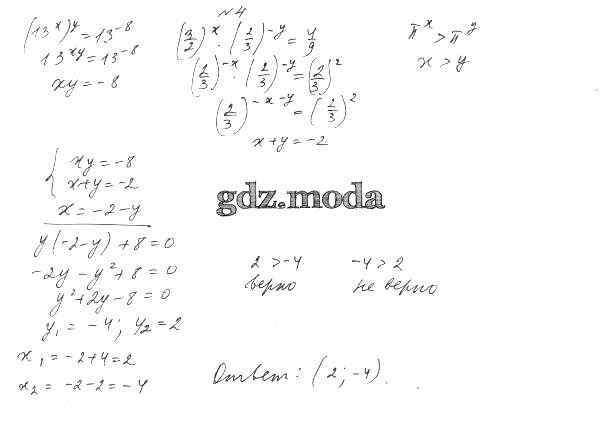 №4
(13^x)^y = 13^-8
13^xy = 13^-8
xy = -8
(3/2)^x · (2/3)^-y = 4/9
(2/3)^-x · (2/3)^-y = (2/3)^2
(2/3)^-x-y = (2/3)^2
x+y = -2
π^x > π^y
x > y
{ xy = -8
x+y = -2
x = -2-y
y(-2-y)+8=0
-2y-y²+8=0
y²+2y-8=0
y₁ = -4; y₂ = 2
x₁ = -2+4=2
x₂ = -2-2=-4
gdz.moda
2 > -4
верно
-4 > 2
не верно
Ответ: (2; -4).